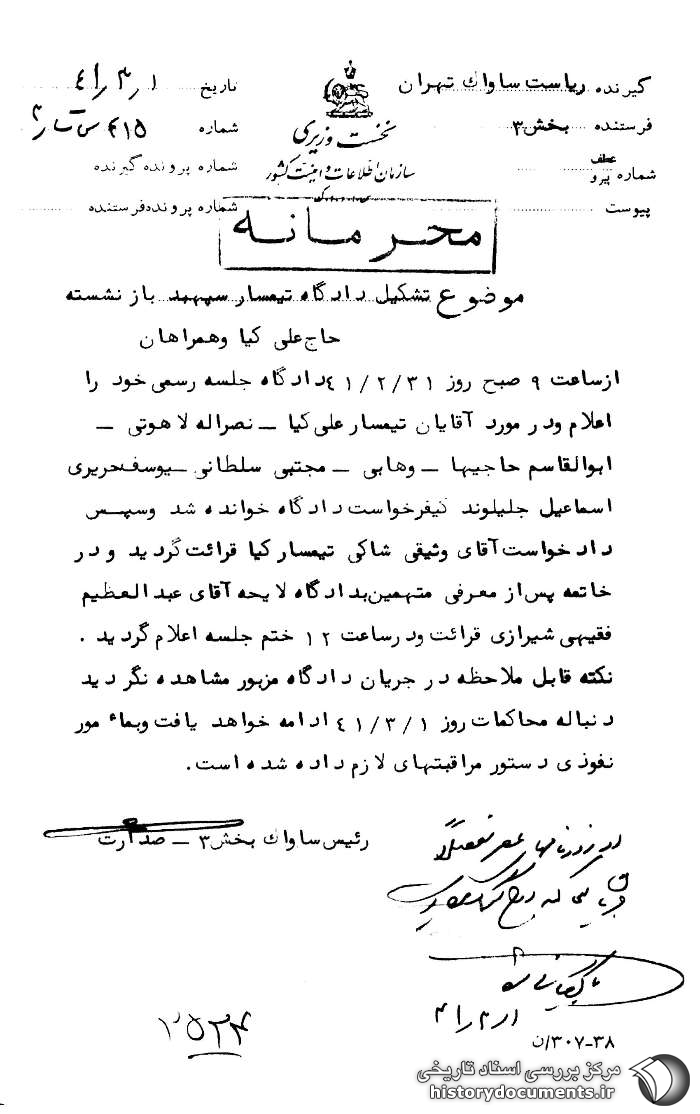 گیرنده ریاست ساواك تهران
فرستنده بخش ۳
عطف
شماره پیرو
پیوست
نخست وزیری
سازمان اطلاعات و امنیت کشور
تاریخ ۴۱/۳/۱
شماره ۴۱۵
شماره پرونده گیرنده
شماره پرونده فرستنده
محرمانه
موضوع تشکیل دادگاه تیمسار سپهبد بازنشسته
حاج علی کیا وهمراهان
ازساعت ۹ صبح روز ۴۱/۲/۳۱ دادگاه جلسه رسمی خود را
اعلام ودر مورد آقایان تیمسار علی کیا ـ نصراله لاهوتی ـ
ابوالقاسم حاجیها ـ وهابی ـ مجتبی سلطانی ـ یوسف حریری
اسماعیل جلیلوند کیفرخواست دادگاه خوانده شد وسپس
دادخواست آقای وثیقی شاکی تیمسار کیا قرائت گردید و در
خاتمه پس از معرفی متهمین بدادگاه لایحه آقای عبدالعظیم
فقیهی شیرازی قرائت ودرساعت ۱۲ ختم جلسه اعلام گردید .
نکته قابل ملاحظه در جریان دادگاه مزبور مشاهده نگردید
دنباله محاکمات روز ۴۱/۳/۱ ادامه خواهد یافت وبماء مور
نفوذی دستور مراقبتهای لازم داده شده است.
رئیس ساواك بخش ۳ ـ صدارت
در روزنامه های عصر مفصلاً
بایگانی شود
۴۱/۳/۱
۲۵۲۴
۳۰۷-۳۸/ن
مرکز بررسی اسناد تاریخی
historydocuments.ir